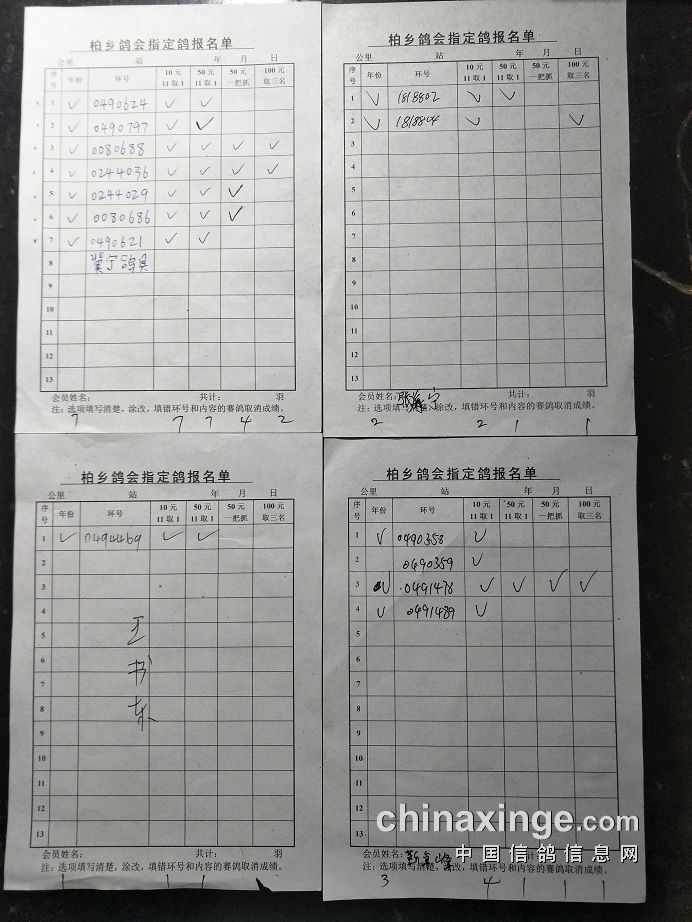 柏乡鸽会指定鸽报名单
公里 站 年 月 日
序号 年份 环号 10元11取1 50元11取1 50元一把抓 100元取三名
1 ✓ 0490624 ✓ ✓
2 ✓ 0490797 ✓ ✓
3 ✓ 0080688 ✓ ✓ ✓ ✓
4 ✓ 0244036 ✓ ✓ ✓ ✓
5 ✓ 0244029 ✓ ✓ ✓
6 ✓ 0080686 ✓ ✓ ✓
7 ✓ 0490621 ✓ ✓
8 冀宁鸽具
9
10
11
12
13
会员姓名: 共计: 羽
注:选项填写清楚,涂改,填错环号和内容的赛鸽取消成绩。
7 7 7 4 2
柏乡鸽会指定鸽报名单
公里 站 年 月 日
序号 年份 环号 10元11取1 50元11取1 50元一把抓 100元取三名
1 ✓ 1818802 ✓ ✓
2 ✓ 1818804 ✓ ✓
3
4
5
6
7
8
9
10
11
12
13
会员姓名: 张 宁 共计: 羽
注:选项填写清楚,涂改,填错环号和内容的赛鸽取消成绩。
2 2 1 1
柏乡鸽会指定鸽报名单
公里 站 年 月 日
序号 年份 环号 10元11取1 50元11取1 50元一把抓 100元取三名
1 ✓ 0494469 ✓ ✓
2
3
4
5 王
6 书
7
8 东
9
10
11
12
13
会员姓名: 共计: 羽
注:选项填写清楚,涂改,填错环号和内容的赛鸽取消成绩。
1 1 1
柏乡鸽会指定鸽报名单
公里 站 年 月 日
序号 年份 环号 10元11取1 50元11取1 50元一把抓 100元取三名
1 ✓ 0490358 ✓
2 0490359 ✓
3 ✓ 0491478 ✓ ✓ ✓ ✓
4 ✓ 0491489 ✓
5
6
7
8
9
10
11
12
13
会员姓名: 共计: 羽
注:选项填写清楚,涂改,填错环号和内容的赛鸽取消成绩。
3 4 1 1 1
chinaxinge.com
中国信鸽信息网